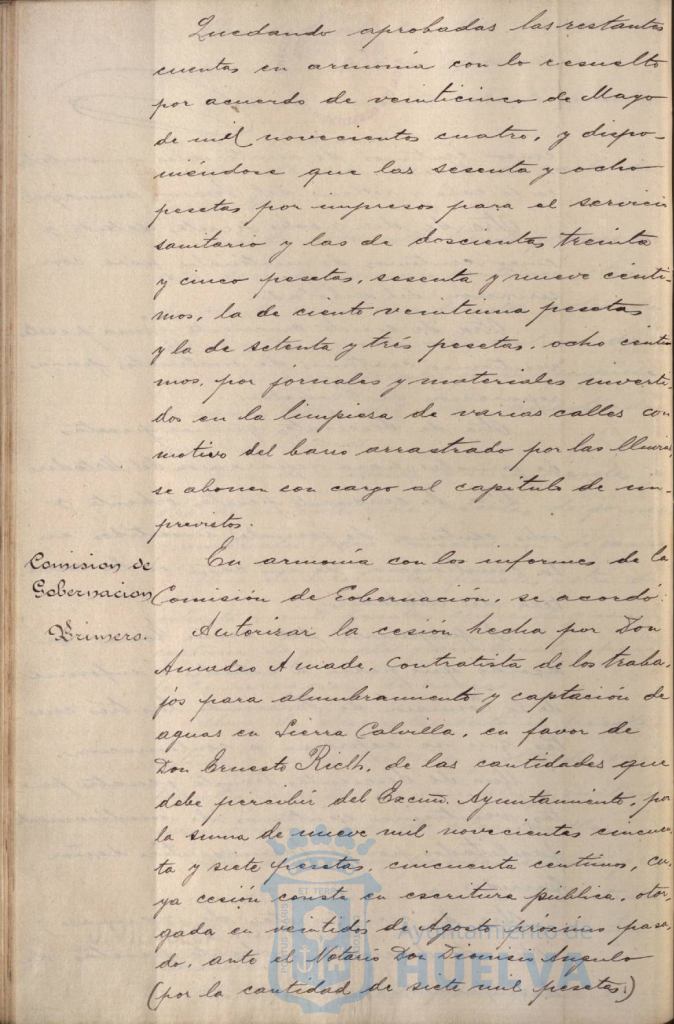 Quedando aprobadas las restantes
cuentas en armonía con lo resuelto
por acuerdo de veinticinco de Mayo
de mil novecientos cuatro, y dispo-
niéndose que las sesenta y ocho
pesetas por impresos para el servicio
sanitario y las de doscientas treinta
y cinco pesetas, sesenta y nueve cénti-
mos, la de ciento veintiuna pesetas
y la de setenta y trés pesetas, ocho cénti
mos, por jornales y materiales inverti-
dos en la limpiesa de varias calles con
motivo del barro arrastrado por las lluvias,
se abonen con cargo al capítulo de im-
previstos.
Comision de
Gobernacion
Primero.
En armonía con los informes de la
Comisión de Gobernación, se acordó:
Autorizar la cesión hecha por Don
Amadeo Amade, contratista de los traba-
jos para alumbramiento y captación de
aguas en Sierra Calvilla, en favor de
Don Ernesto Rieth, de las cantidades que
debe percibir del Excmo. Ayuntamiento, por
la suma de nueve mil novecientas cincuen-
ta y siete pesetas, cincuenta céntimos, cu-
ya cesión consta en escritura pública, otor-
gada en veintidós de Agosto próximo pasa-
do, ante el Notario Don Dionisio Angulo
(por la cantidad de siete mil pesetas.)
Ayuntamiento de
HUELVA